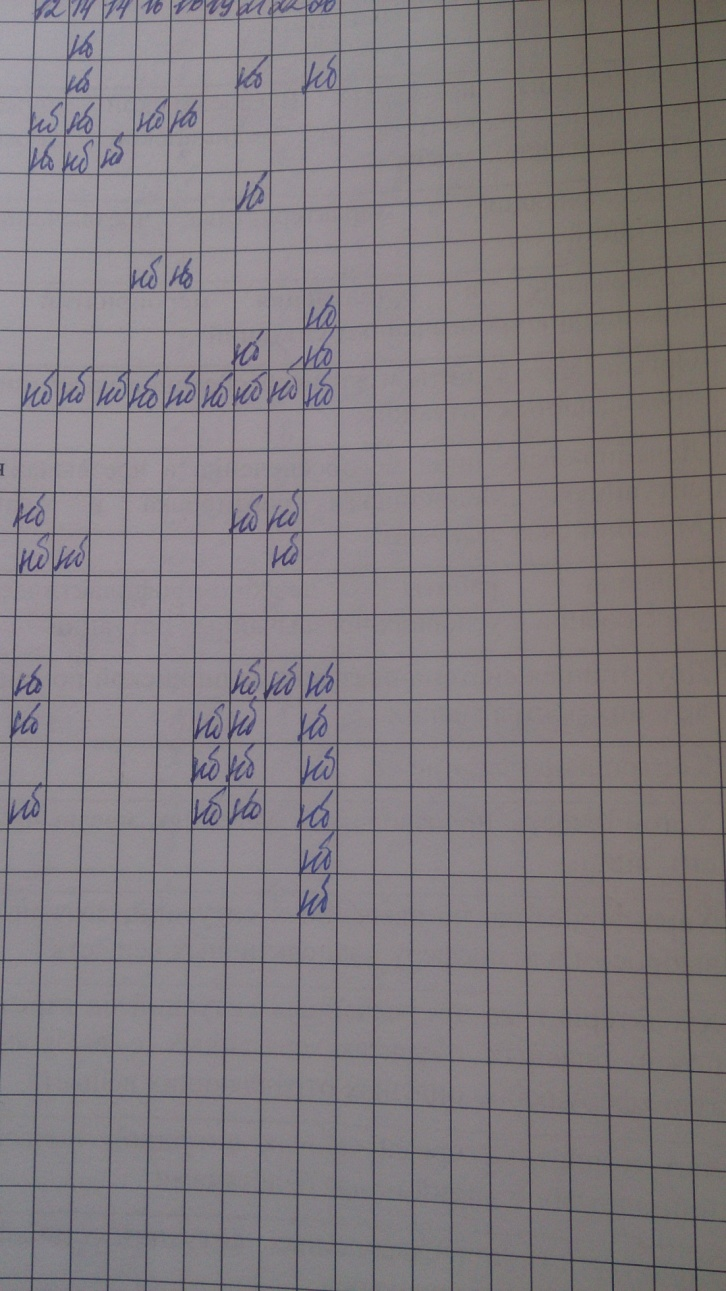 12 14 14 16 16 19 21 22 26
нб
нб нб нб
нб нб нб нб
нб нб нб
нб
нб нб
нб
нб нб
нб нб нб нб нб нб нб нб нб
нб нб нб
нб нб нб
нб нб нб нб
нб нб нб нб
нб нб нб
нб нб нб нб
нб
нб